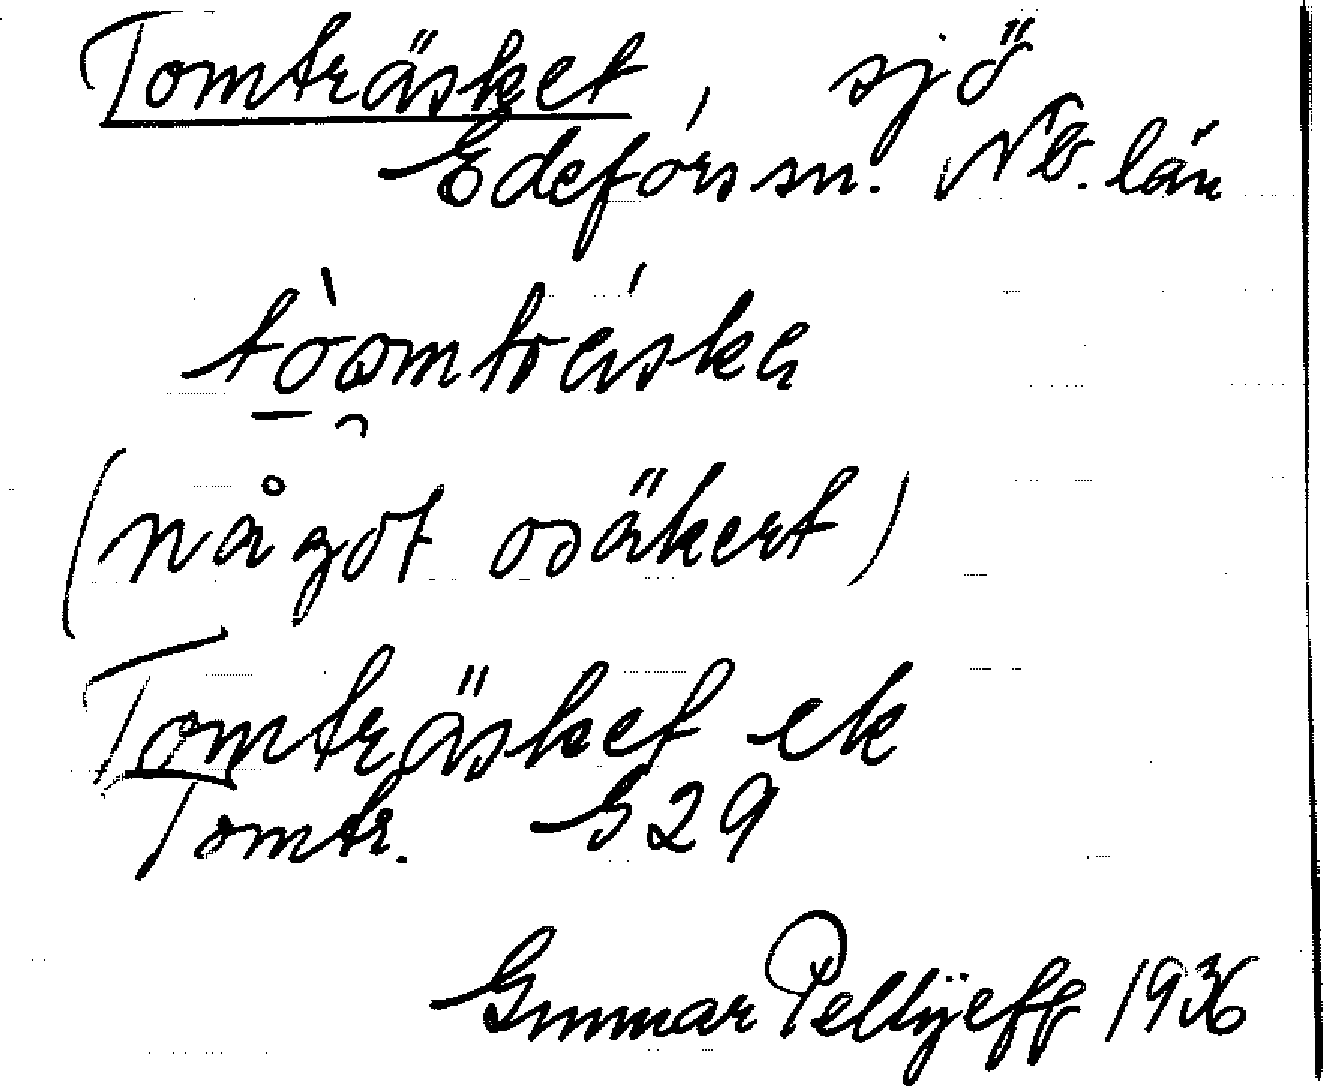 Tomträsket, sjö
Edefors sn. Nb. län
tòəmtréskə
(något osäkert)
Tomträsket ek
Tomtr. S29
Gunnar Pellijeff 1936